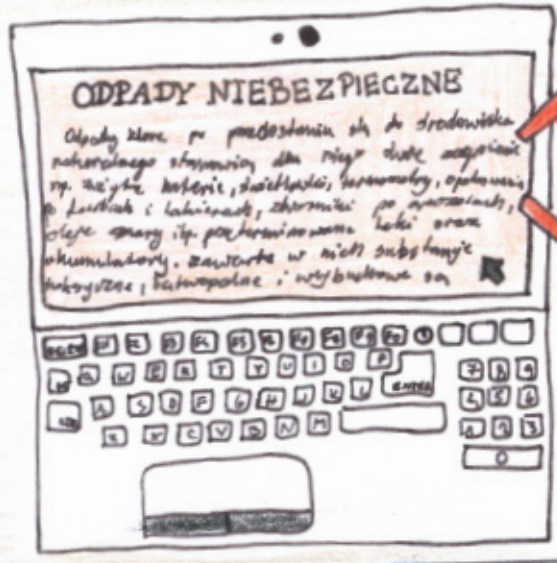 ODPADY NIEBEZPIECZNE
Odpady które po przedostaniu się do środowiska
naturalnego stanowią dla niego duże zagrożenie
np. zużyte baterie, świetlówki, termometry, opakowania
po farbach i lakierach, zbiorniki po aerozolach,
oleje smary itp. przeterminowane leki oraz
akumulatory. zawarte w nich substancje
toksyczne, łatwopalne i wybuchowe są
F1 F2 F3 F4 F5 F6
Q W E R T Y U I O P 7 8 9
A S D F G H J K L ENTER 4 5 6
Z X C V B N M 1 2 3
0